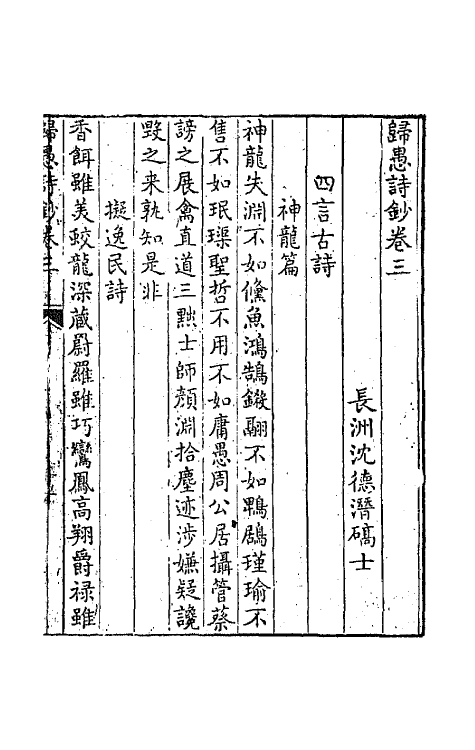 歸愚詩鈔卷三
長洲沈德潛碻士
四言古詩
神龍篇
神龍失淵不如儵魚鴻鵠鎩翮不如鴨鷉瑾瑜不
售不如珉璖聖哲不用不如庸愚周公居攝管蔡
謗之展禽直道三黜士師顏淵拾塵迹涉嫌疑讒
毀之来孰知是非
擬逸民詩
香餌雖美蛟龍深蔵罻羅雖巧鸞鳳高翔爵禄雖
歸愚詩鈔卷三